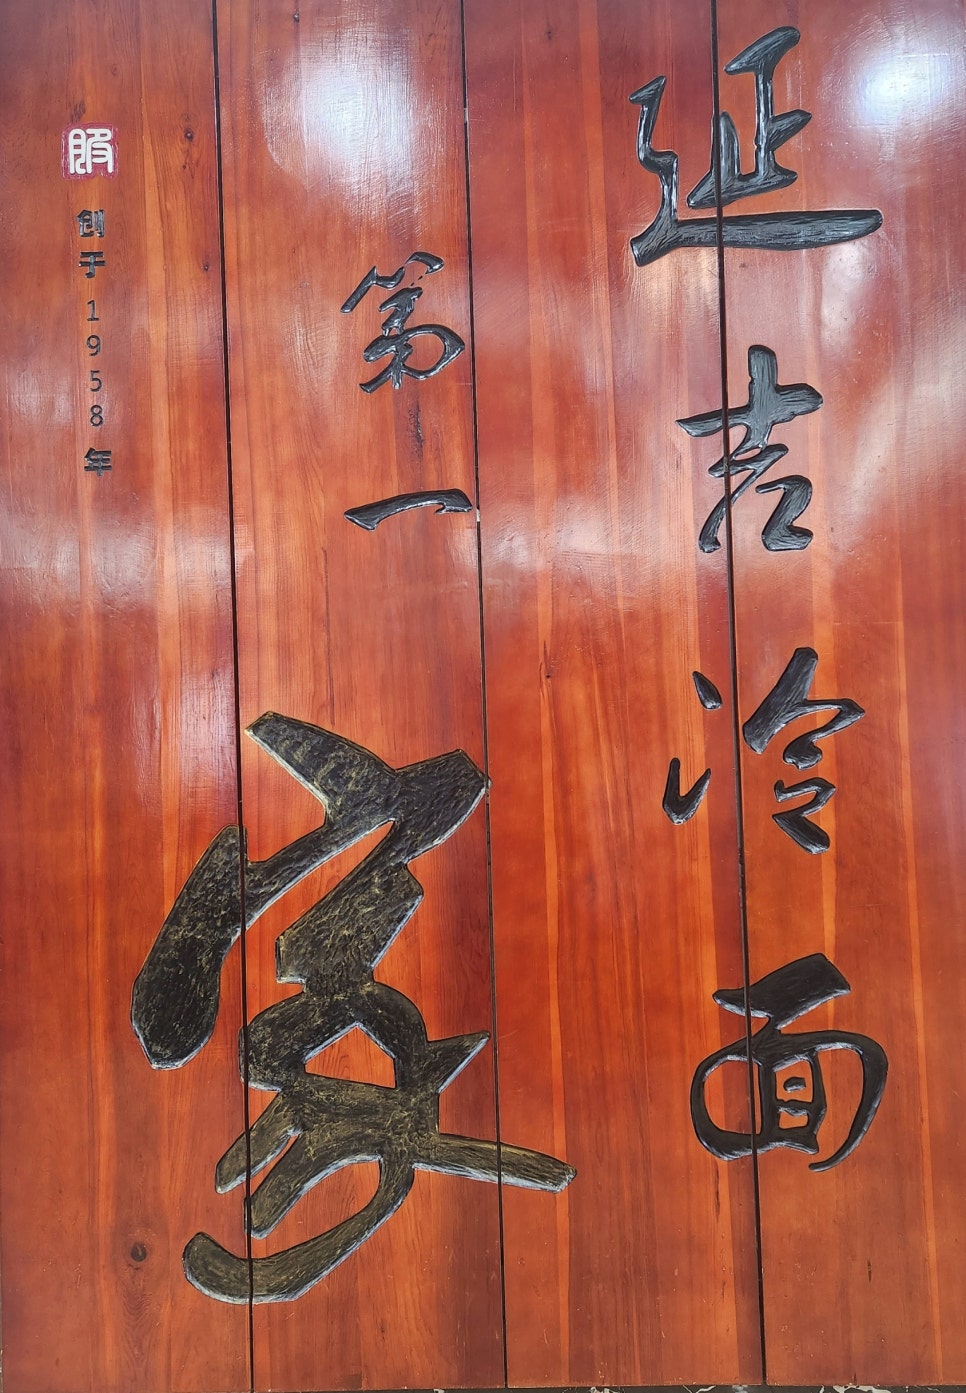 延吉冷面
第一家
服
创于1958年